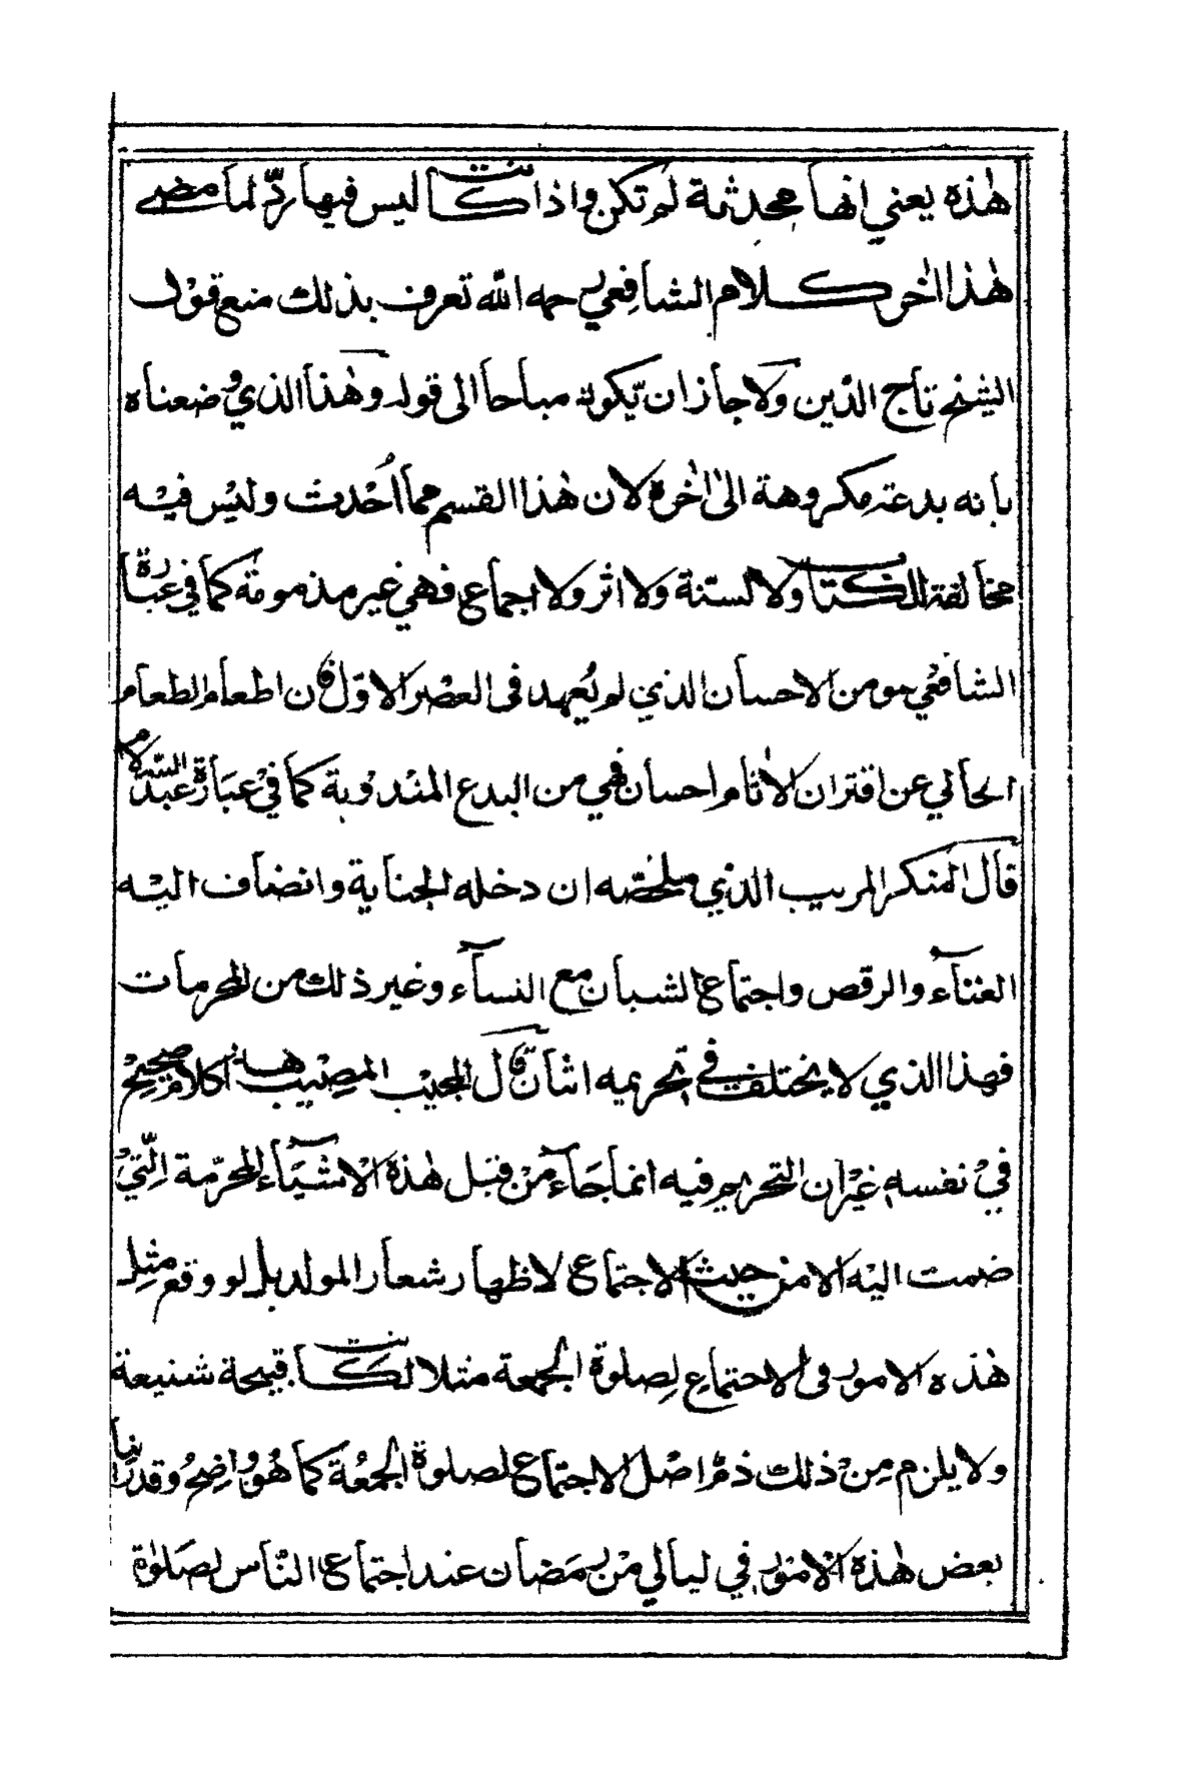 هٰذه يعني انها محدثة لم تكن واذا كانت ليس فيها ردّ لما مضى
هٰذا اٰخر كلام الشافعي رحمه الله تعرف بذلك منع قول
الشيخ تاج الدّين ولا جاز ان يّكون مباحا الى قوله وهٰذا الذي وضعناه
بانه بدعة مكروهة الىٰ اٰخره لان هٰذا القسم مما اُحْدث وليْس فيْه
مخالفة للكتاب ولا لسّنة ولا اثر ولا اجماع فهي غير مذمومة كما في عبارة
الشافعي هو من الاحسان الذي لم يُعهد فى العصْر الاوّل فان اطعام الطعام
الخالي عن اقتران الاٰثام احسان فهي من البدع المنْدوبة كما فيْ عبَارة عبْد السّلام
قال المنكر المريب الذي ملخّصه ان دخله الجناية وانضاف اليْه
الغنآء والرقص واجتماع الشبان مع النسآء وغير ذلك من المحرمات
فهذا الذي لا يختلف في تحريمه اثنان قال المجيْب المصيْب هذا كلام صحيْح
فيْ نفسه غيْر ان التحريم فيه انما جَآء منْ قبل هٰذه الاشْيَآء المحرّمة الّتيْ
ضمت اليْه لا منْ حيث الاجتماع لاظهار شعار المولد بل لو وقع مثل
هٰذه الامور فى الاجتماع لصلوة الجمعة مثلا لكانت قبيحة شنيعة
ولا يلزم مِنْ ذلك ذمّ اصْل الاجتماع لصلوة الجمعُة كما هُو واضحُ وقد رايْنا
بعض هٰذه الامْور في ليالي منْ رمَضان عند اجتماع النّاس لصَلٰوة